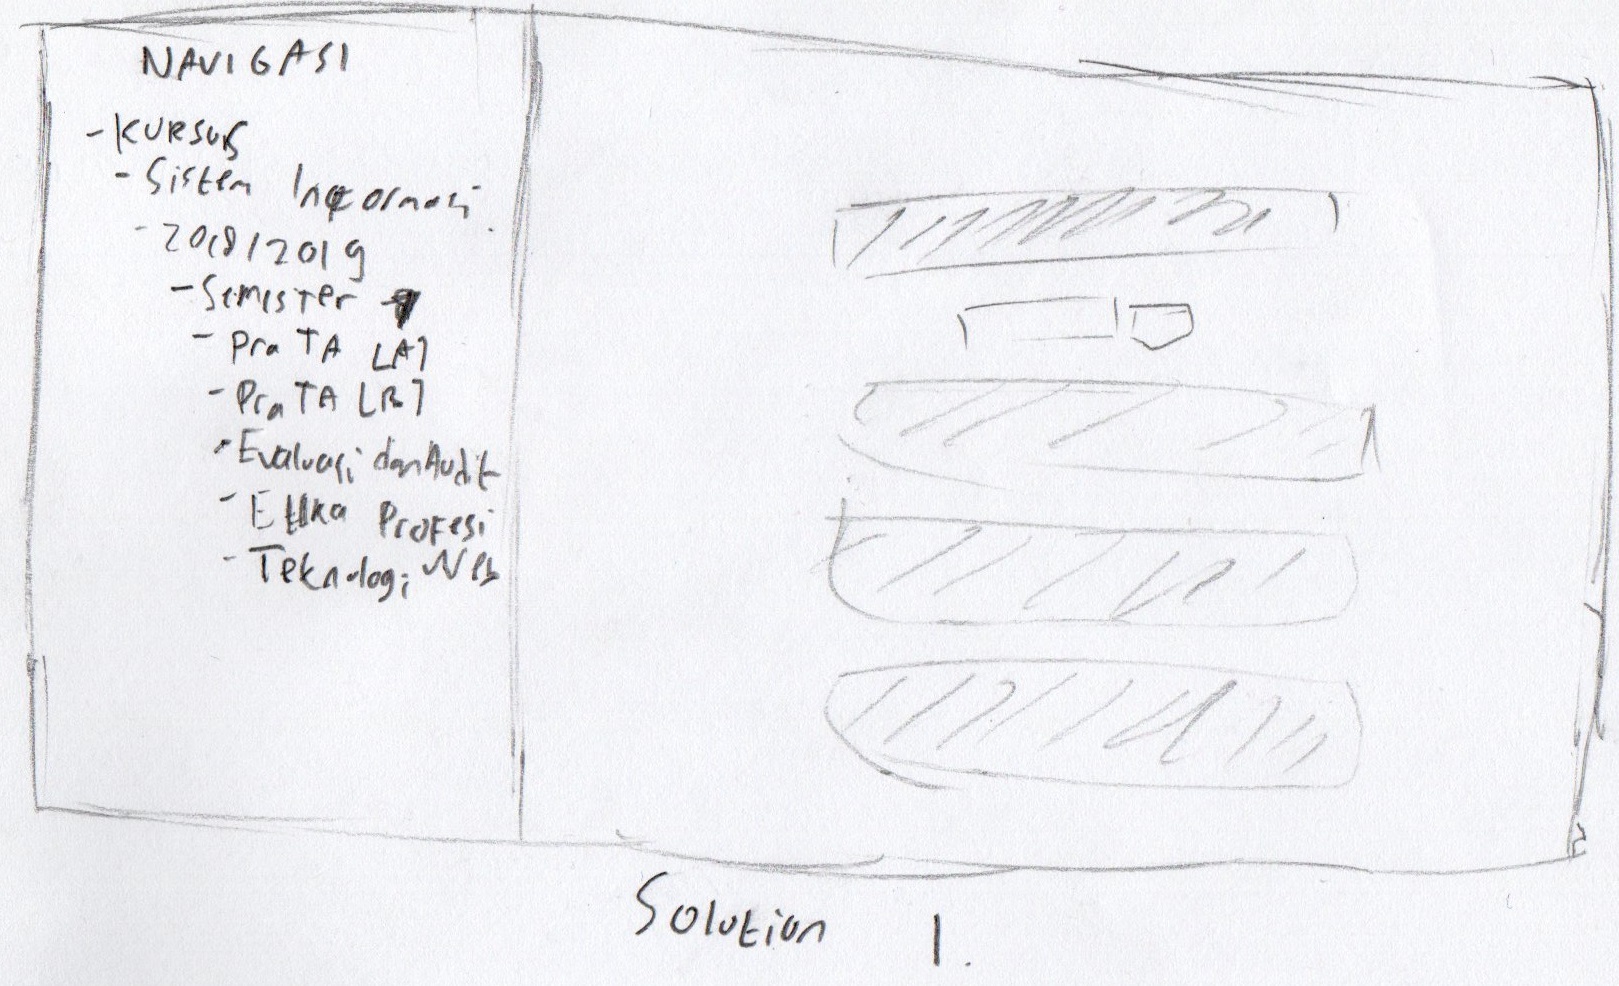 NAVIGASI
- KURSUS
- Sistem Informasi
- 2018/2019
- Semester 7
- Pra TA [A]
- Pra TA [B]
- Evaluasi dan Audit
- Etika Profesi
- Teknologi Web
Solution 1.